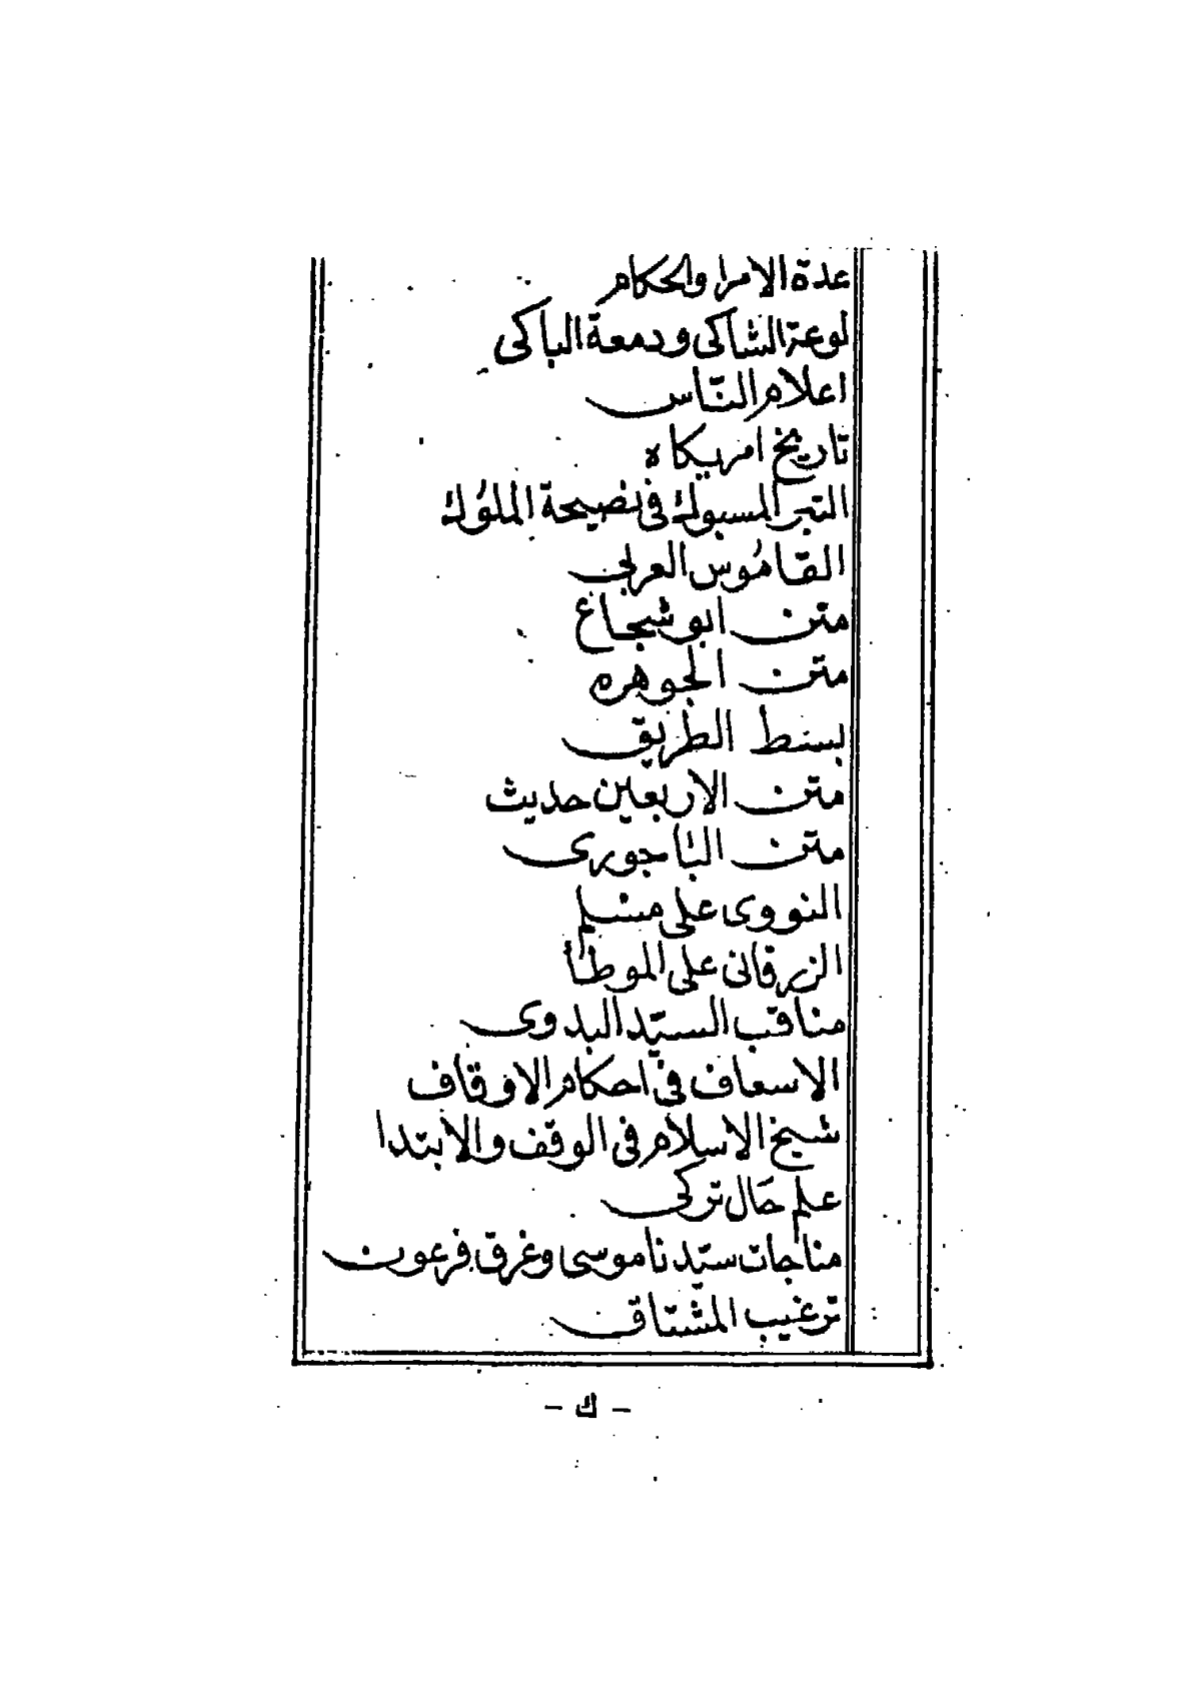 عدة الامرا والحكام
لوعة الشاكى ودمعة الباكى
اعلام النّاس
تاريخ امريكاه
التبر المسبوك فى نصيحة الملوك
القامُوس العربى
متن ابو شجاع
متن الجوهره
بسط الطريق
متن الاربعين حديث
متن الباجورى
النووى على مسلم
الزرقانى على الموطأ
مناقب السيّد البدوى
الاسعاف فى احكام الاوقاف
شيخ الاسلام فى الوقف والابتدا
علم حَال تركى
مناجات سيّدنا موسى وغرق فرعون
ترغيب المشتاق
- ك -